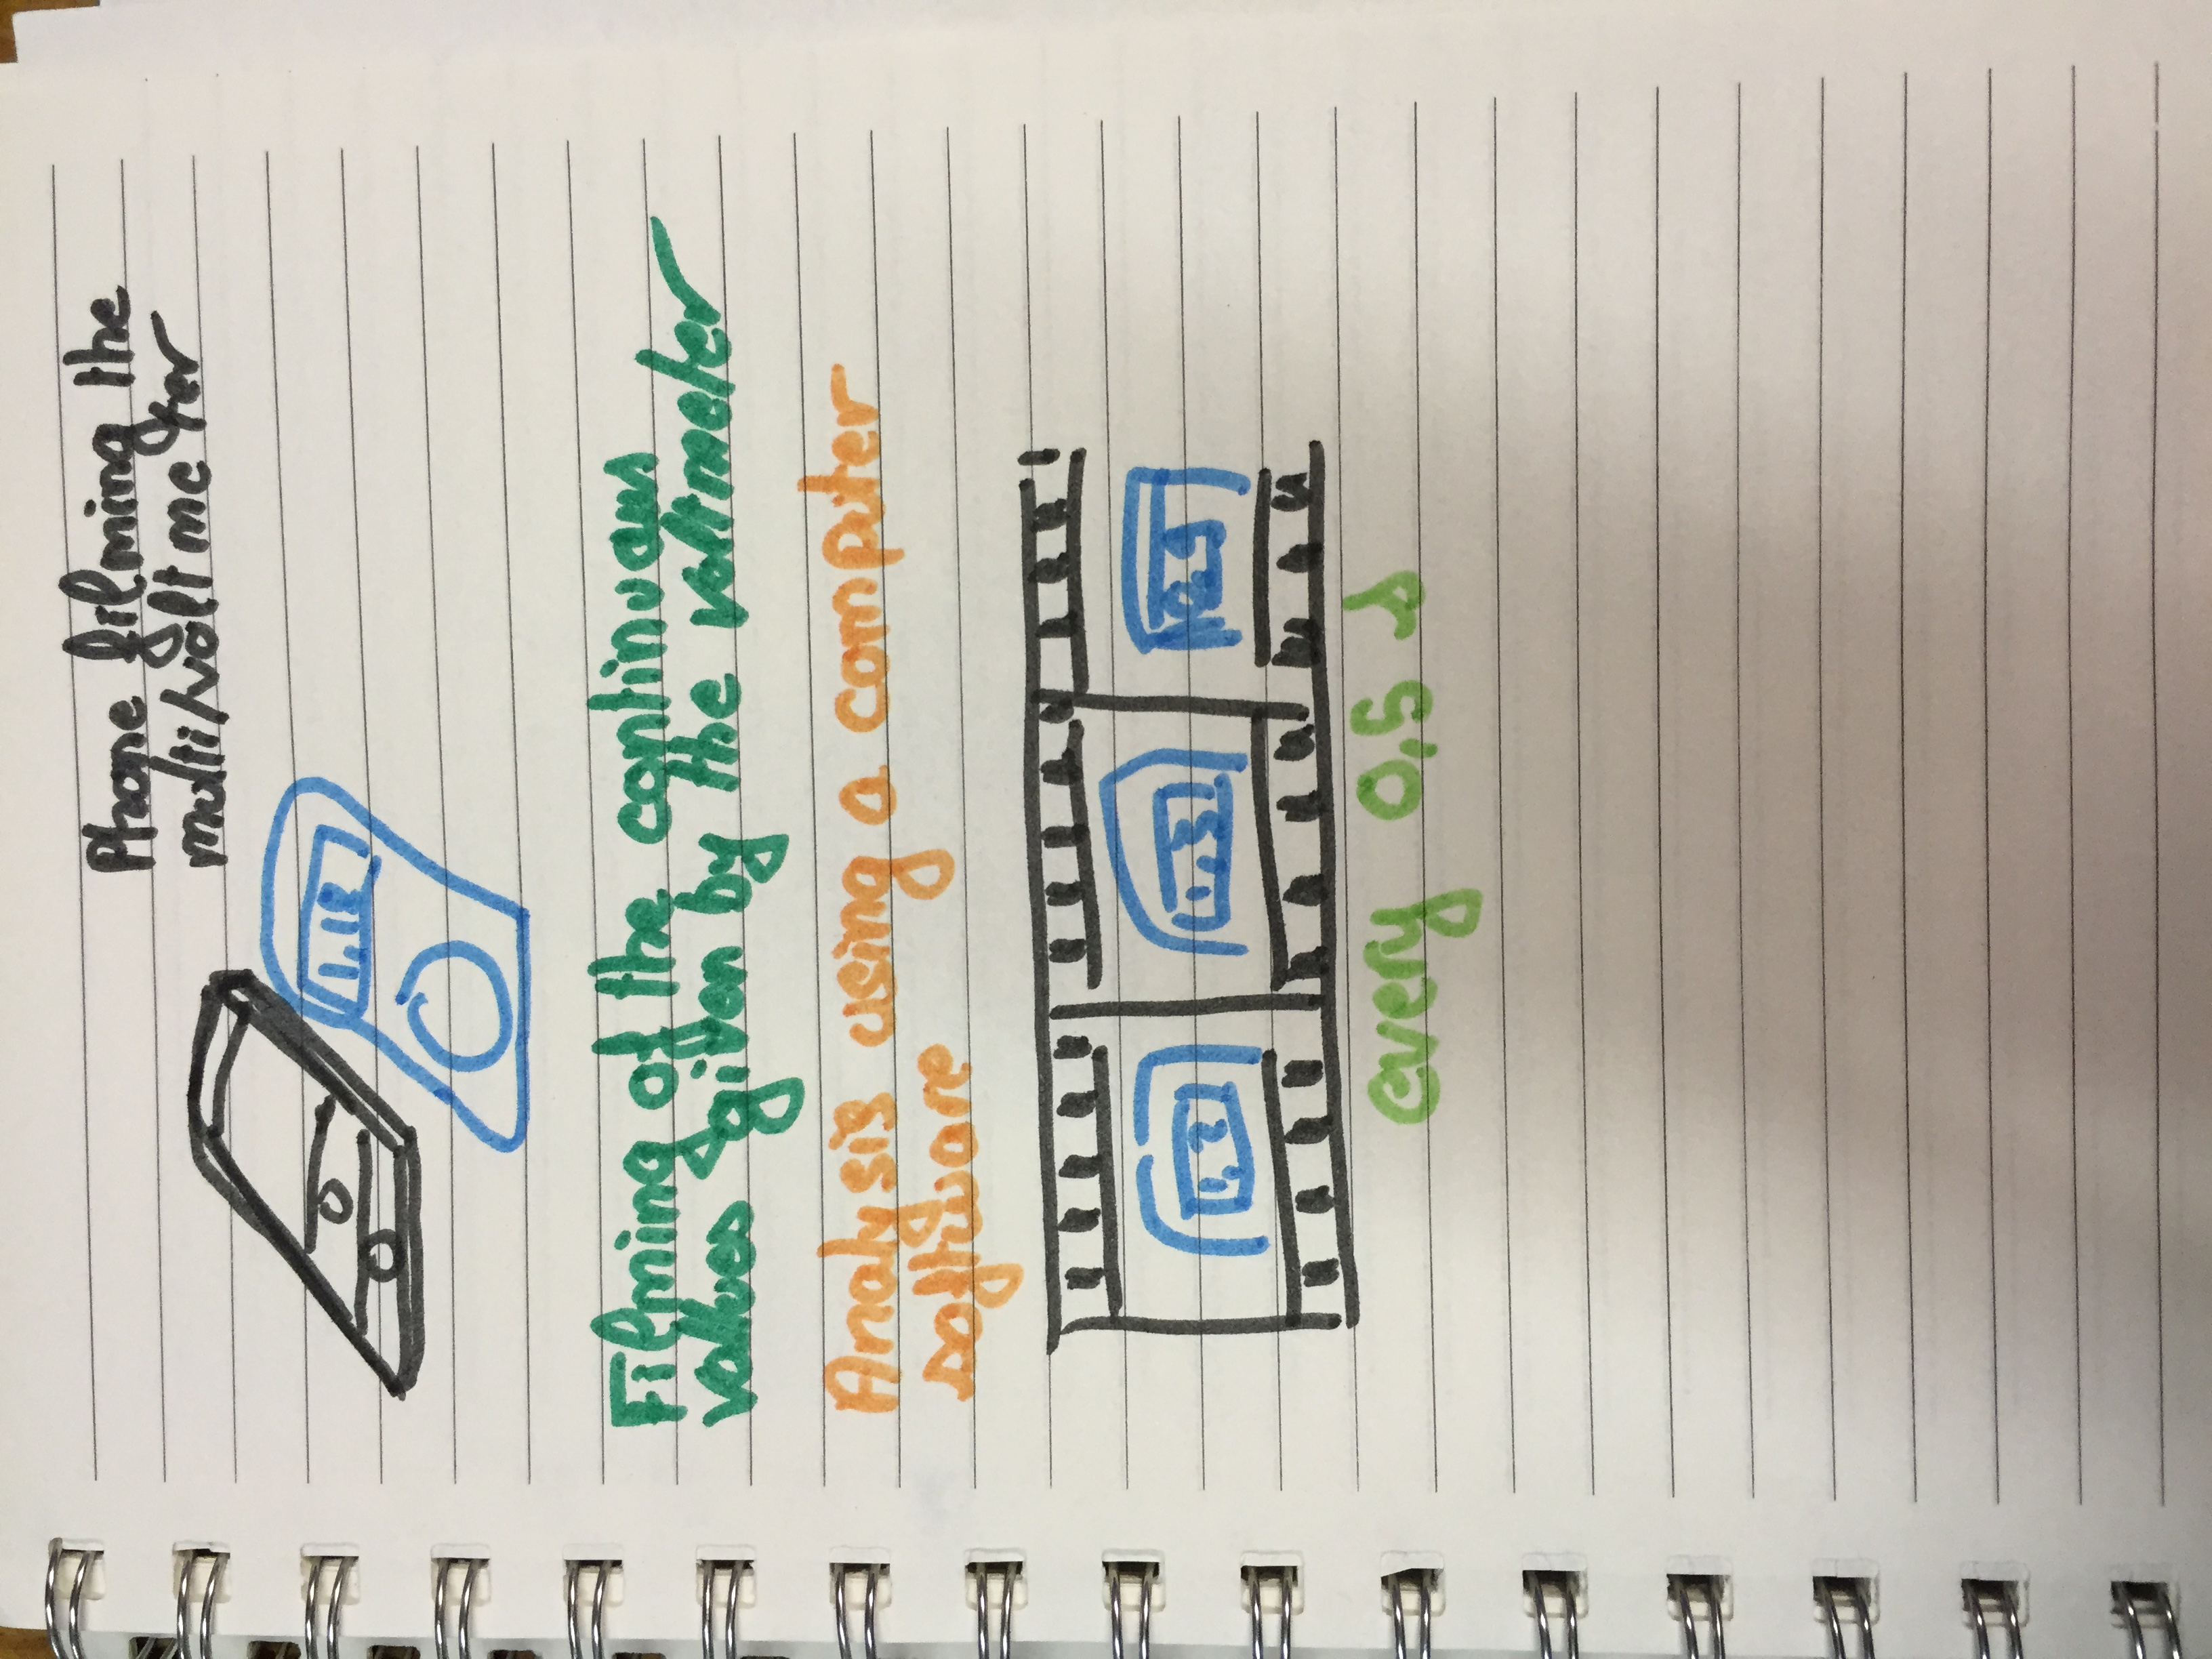 Phone filming the
multi/voltmeter
1,18
Filming of the continuous
values given by the voltmeter
Analysis using a computer
software
1,2
1,3
0,9
every 0,5 s